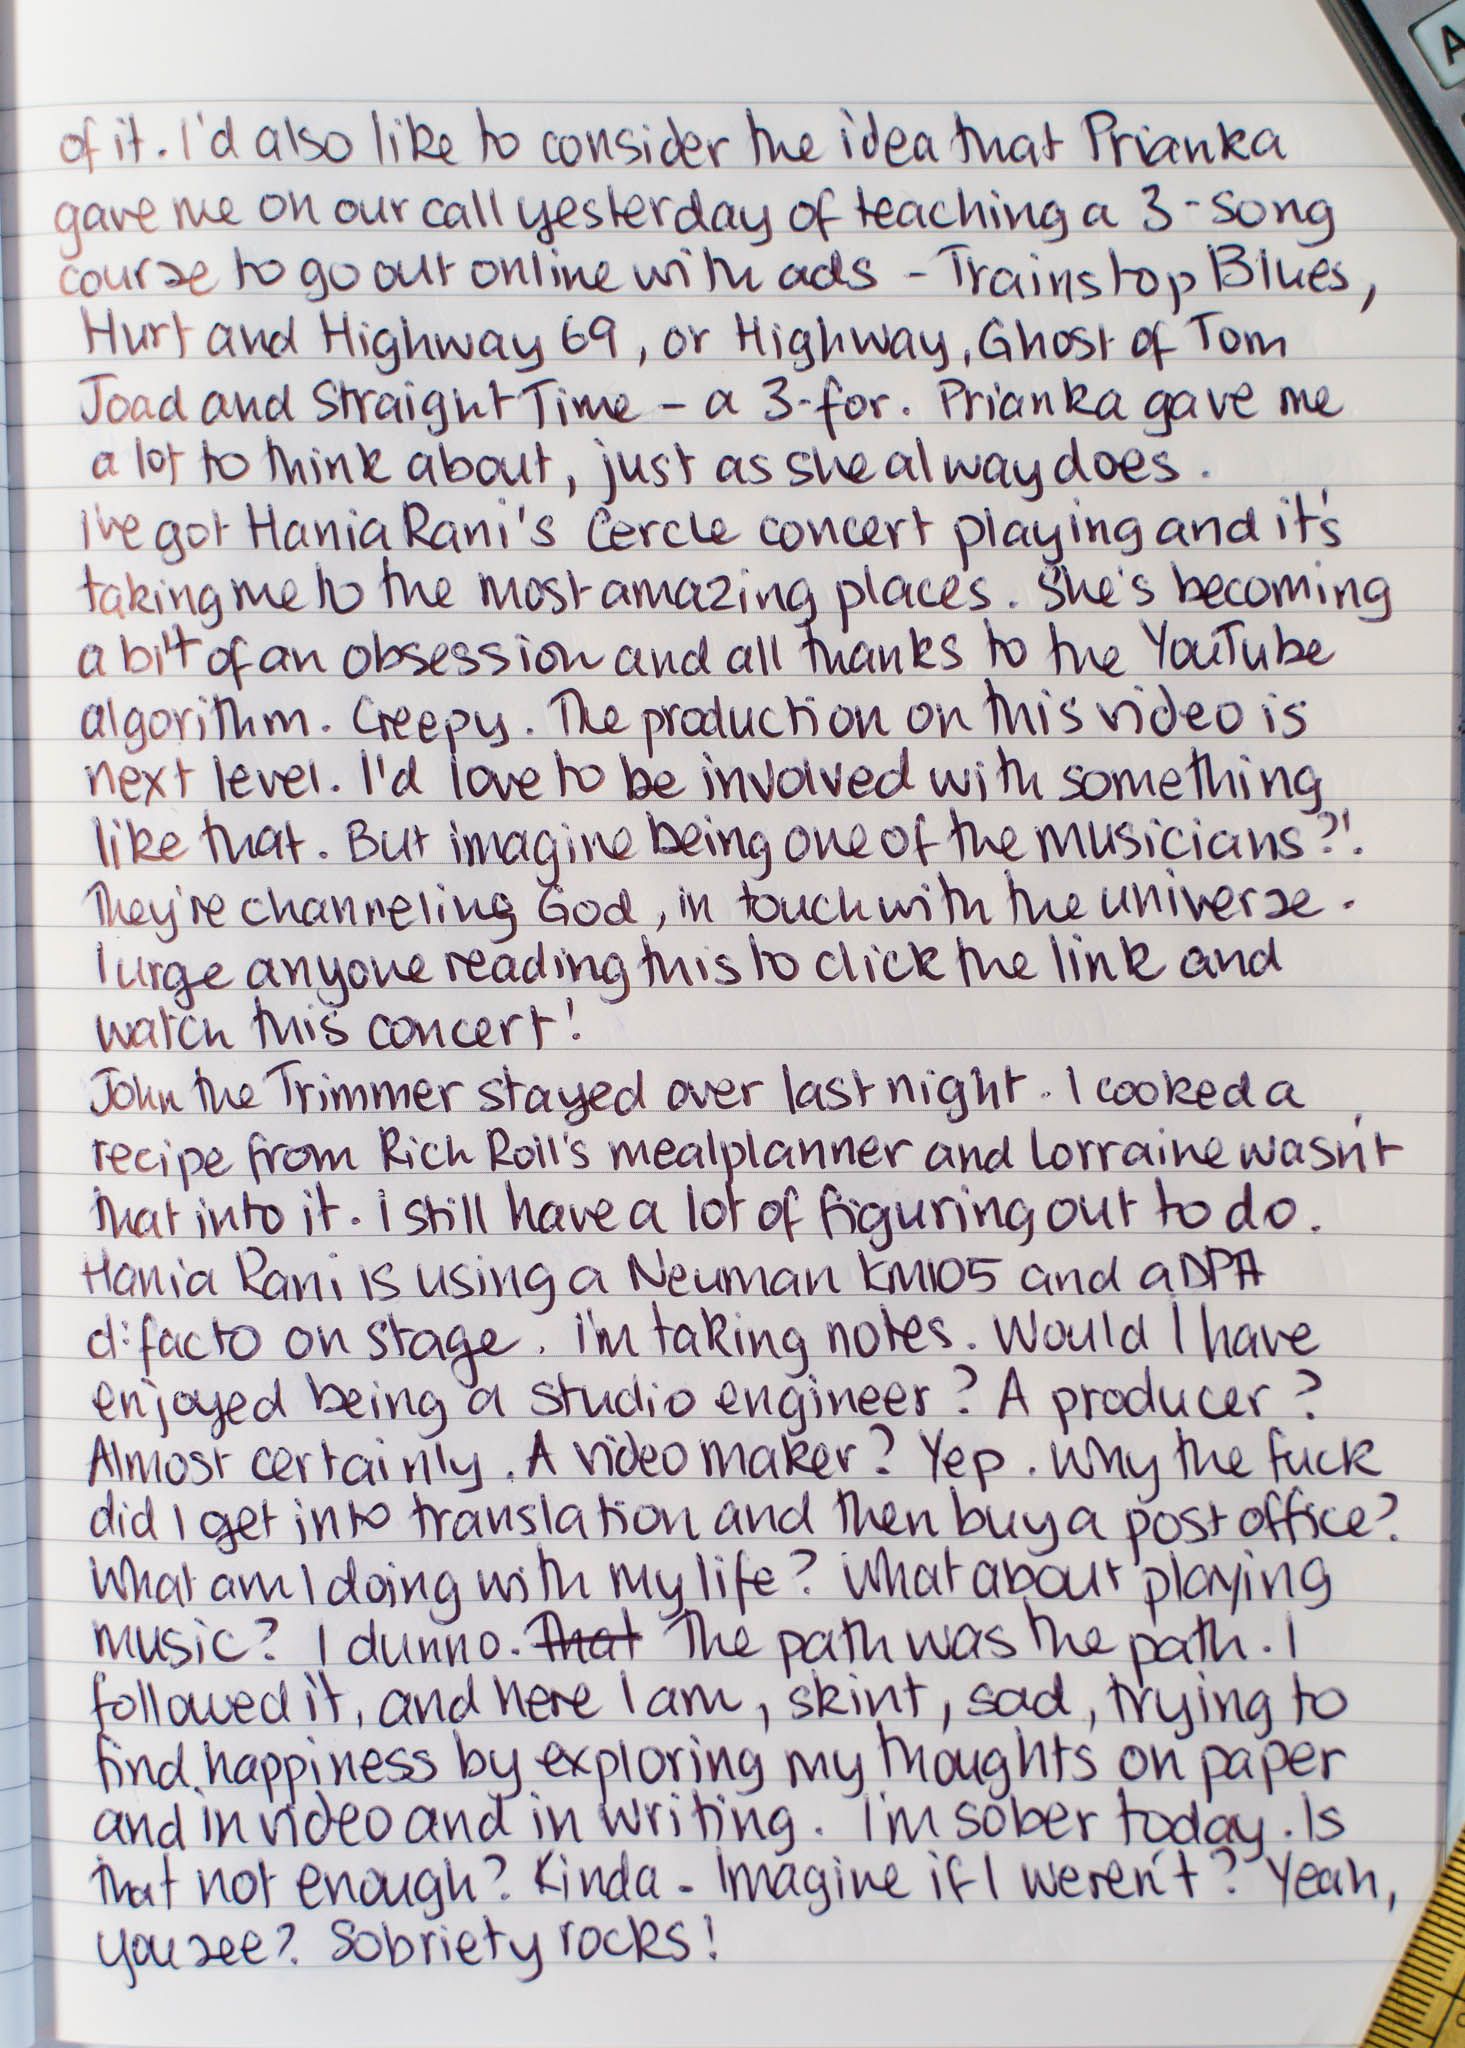 of it. I'd also like to consider the idea that Prianka
gave me on our call yesterday of teaching a 3-song
course to go out online with ads - Trainstop Blues,
Hurt and Highway 69, or Highway, Ghost of Tom
Joad and Straight Time - a 3-for. Prianka gave me
a lot to think about, just as she alway does.
I've got Hania Rani's Cercle concert playing and it's
taking me to the most amazing places. She's becoming
a bit of an obsession and all thanks to the YouTube
algorithm. Creepy. The production on this video is
next level. I'd love to be involved with something
like that. But imagine being one of the musicians?!
They're channeling God, in touch with the universe.
I urge anyone reading this to click the link and
watch this concert!
John the Trimmer stayed over last night. I cooked a
recipe from Rich Roll's mealplanner and Lorraine wasn't
that into it. I still have a lot of figuring out to do.
Hania Rani is using a Neuman KM105 and a DPA
d:facto on stage. I'm taking notes. Would I have
enjoyed being a studio engineer? A producer?
Almost certainly. A video maker? Yep. Why the fuck
did I get into translation and then buy a post office?
What am I doing with my life? What about playing
music? I dunno. That The path was the path. I
followed it, and here I am, skint, sad, trying to
find happiness by exploring my thoughts on paper
and in video and in writing. I'm sober today. Is
that not enough? Kinda - Imagine if I weren't? Yeah,
you see? Sobriety rocks!
A